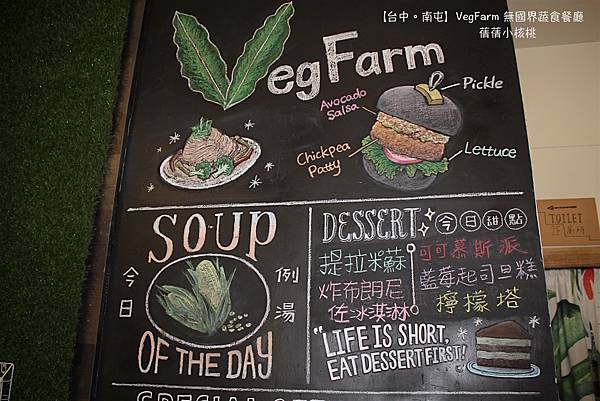 【台中。南屯】VegFarm 無國界蔬食餐廳
蓓蓓小核桃
VegFarm
Avocado
Salsa
Pickle
Chickpea
Patty
Lettuce
SOUP
今日
例湯
OF THE DAY
DESSERT 今日甜點
提拉米蘇
可可慕斯派
炸布朗尼
佐冰淇淋
藍莓起司旦糕
檸檬塔
"LIFE IS SHORT,
EAT DESSERT FIRST!"
TOILET